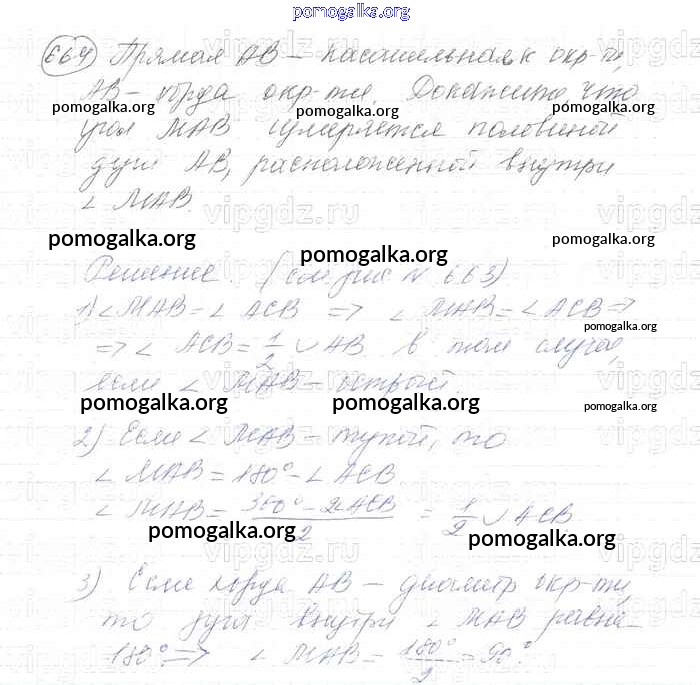 pomogalka.org
664 Прямая АВ – касательная к окр-ти,
АВ – хорда окр-ти. Докажите что
pomogalka.org pomogalka.org pomogalka.org
угол МАВ измеряется половиной
дуги АВ, расположенной внутри
∠ МАВ.
vipgdz.ru vipgdz.ru vipgdz.ru
pomogalka.org pomogalka.org pomogalka.org
Решение. (см. рис N 663)
1) ∠ МАВ = ∠ АСВ ⇒ ∠ МАВ = ∠ АСВ ⇒
pomogalka.org
⇒ ∠ АСВ = 1/2 ∪ АВ в том случае,
если ∠ МАВ – острый.
pomogalka.org pomogalka.org pomogalka.org
2) Если ∠ МАВ – тупой, то
∠ МАВ = 180° - ∠ АСВ
∠ МАВ = (360° - 2∠АСВ)/2 = 1/2 ∪ АСВ.
pomogalka.org pomogalka.org
3) Если хорда АВ – диаметр окр-ти,
то дуга внутри ∠ МАВ равна
180° ⇒ ∠ МАВ = 180°/2 = 90°.